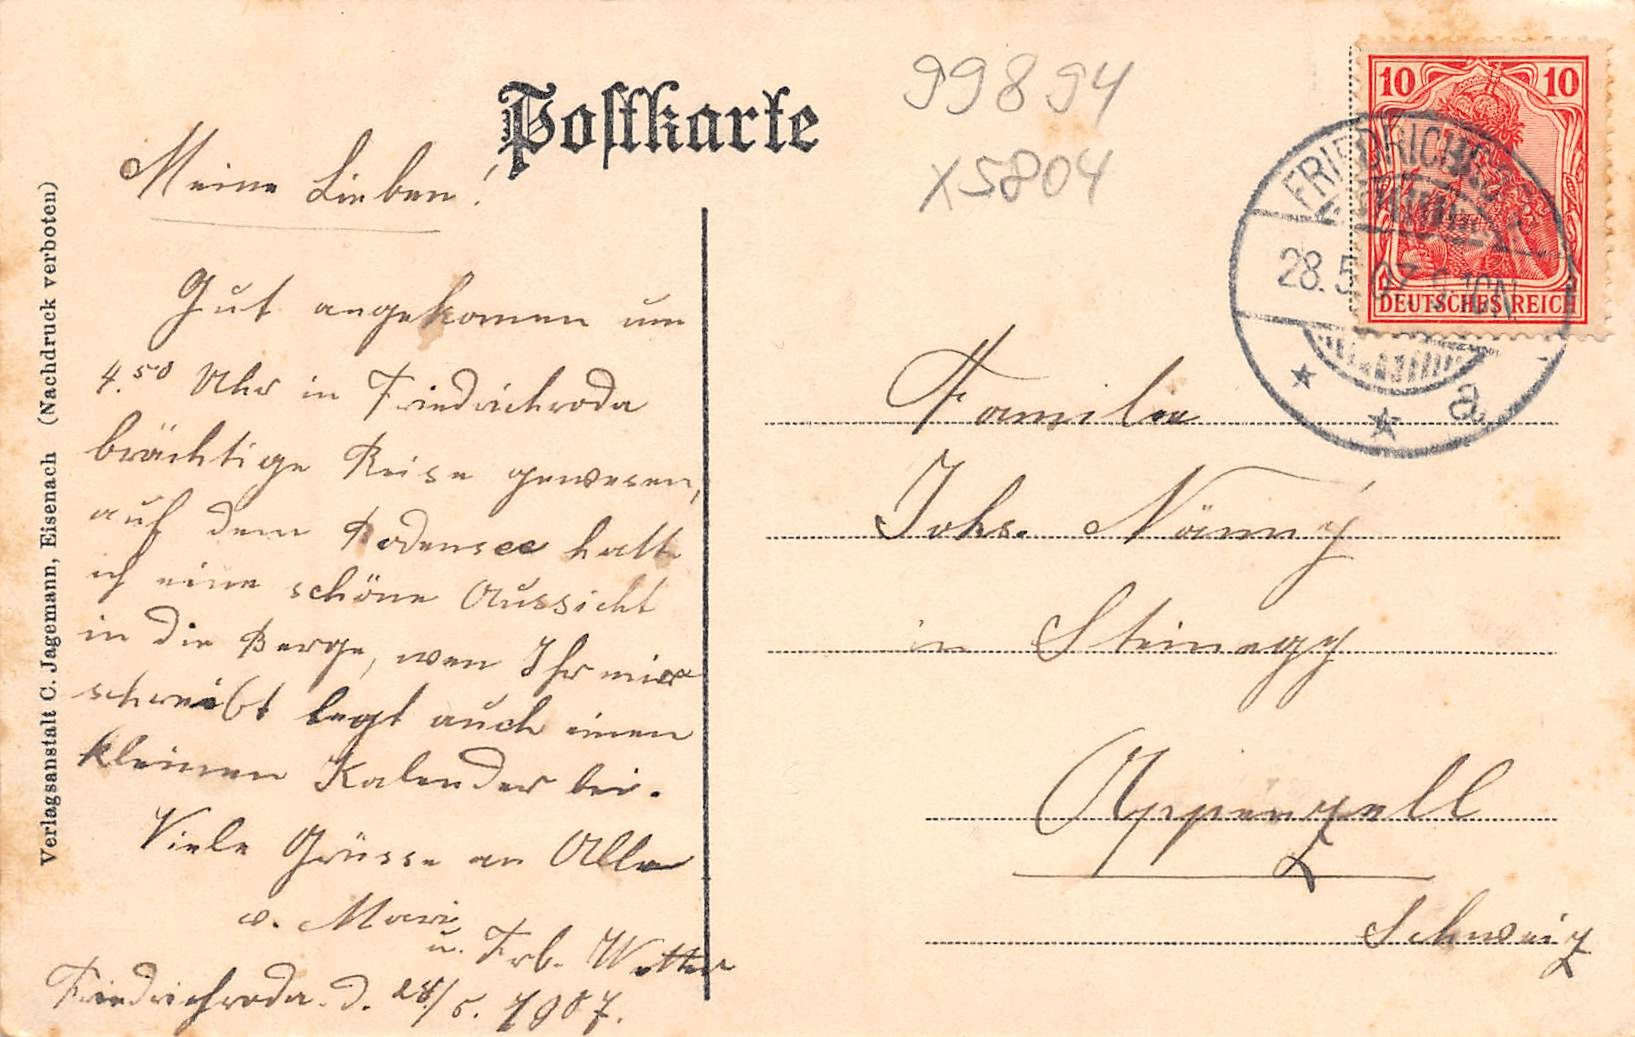 Postkarte
99894
X5804
Meine Lieben!
Gut angekommen um
4.50 Uhr in Friedrichroda
brächtige Reise gewesen,
auf dem Bodensee hatte
ich eine schöne Aussicht
in die Berge, wen Ihr mir
schreibt legt auch einen
kleinen Kalender bei.
Viele Grüsse an Alle
v. Marie
u. Frb. Wetter
Friedrichroda. d. 28/5. 1907.
Verlagsanstalt C. Jagemann, Eisenach (Nachdruck verboten)
10 10
DEUTSCHES REICH
FRIEDRICHRODA
28.5.07. 9-10N.
a
Familie
Johs. Nänny
in Steinegg
Appenzell
Schweiz